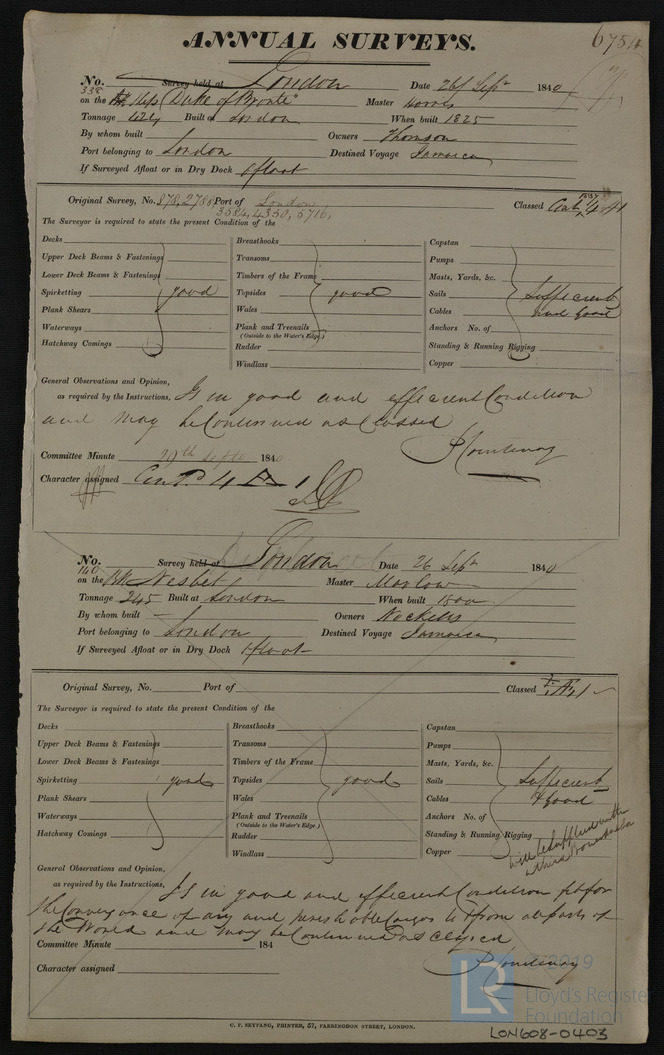 ANNUAL SURVEYS.
6754
No. 338 Survey held at London Date 26 Sepr 1840
on the Ship "Duke of Bronte" Master
Tonnage 424 Built at London When built 1825
By whom built Owners Thomson
Port belonging to London Destined Voyage Jamaica
If Surveyed Afloat or in Dry Dock Afloat
Original Survey, No. 878, 2780, Port of London Classed
3584, 4350, 5716,
The Surveyor is required to state the present Condition of the
Decks
Upper Deck Beams & Fastenings
Lower Deck Beams & Fastenings
Spirketting good
Plank Shears
Waterways
Hatchway Comings
Breasthooks
Transoms
Timbers of the Frame
Topsides good
Wales
Plank and Treenails
(Outside to the Water's Edge.)
Rudder
Windlass
Capstan
Pumps
Masts, Yards, &c.
Sails Sufficient
Cables and Good
Anchors No. of
Standing & Running Rigging
Copper
General Observations and Opinion,
as required by the Instructions, Is in good and efficient Condition
and may be Continued as Classed
Committee Minute 29th Septr 1840
Character assigned 4 A 1
No. 140 Survey held at London Date 26 Sepr 1840
on the Bk Nesbet Master Marlow
Tonnage 245 Built at London When built 1800
By whom built — Owners
Port belonging to London Destined Voyage Jamaica
If Surveyed Afloat or in Dry Dock Afloat
Original Survey, No. Port of Classed
The Surveyor is required to state the present Condition of the
Decks
Upper Deck Beams & Fastenings
Lower Deck Beams & Fastenings
Spirketting good
Plank Shears
Waterways
Hatchway Comings
Breasthooks
Transoms
Timbers of the Frame
Topsides good
Wales
Plank and Treenails
(Outside to the Water's Edge.)
Rudder
Windlass
Capstan
Pumps
Masts, Yards, &c.
Sails Sufficient
Cables & Good
Anchors No. of
Standing & Running Rigging
Copper
will be supplied with
General Observations and Opinion,
as required by the Instructions, Is in good and efficient Condition fit for
the Conveyance of dry and perishable Cargoes to & from all parts of
the World and may be Continued as classed
Committee Minute 184
Character assigned
C. F. SEYFANG, PRINTER, 57, FARRINGDON STREET, LONDON.
LR
© 2019
Lloyd's Register
Foundation
LON608-0403